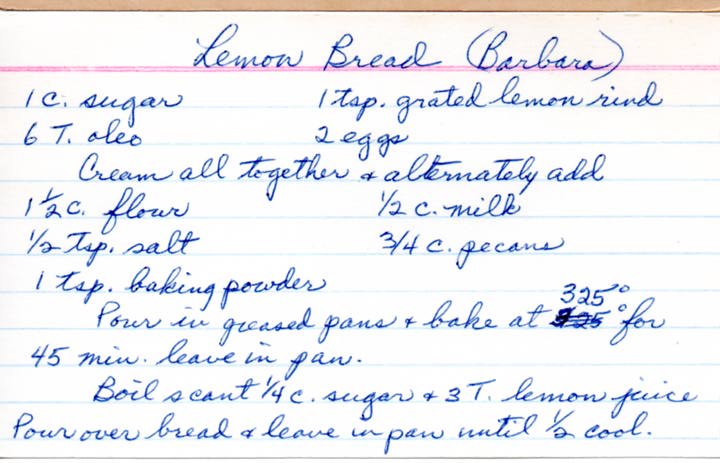 Lemon Bread (Barbara)
1 c. sugar 1 tsp. grated lemon rind
6 T. oleo 2 eggs
Cream all together & alternately add
1 1/2 c. flour 1/2 c. milk
1/2 tsp. salt 3/4 c. pecans
1 tsp. baking powder
325°
Pour in greased pans & bake at ° for
45 min. leave in pan.
Boil scant 1/4 c. sugar & 3 T. lemon juice
Pour over bread & leave in pan until 1/2 cool.